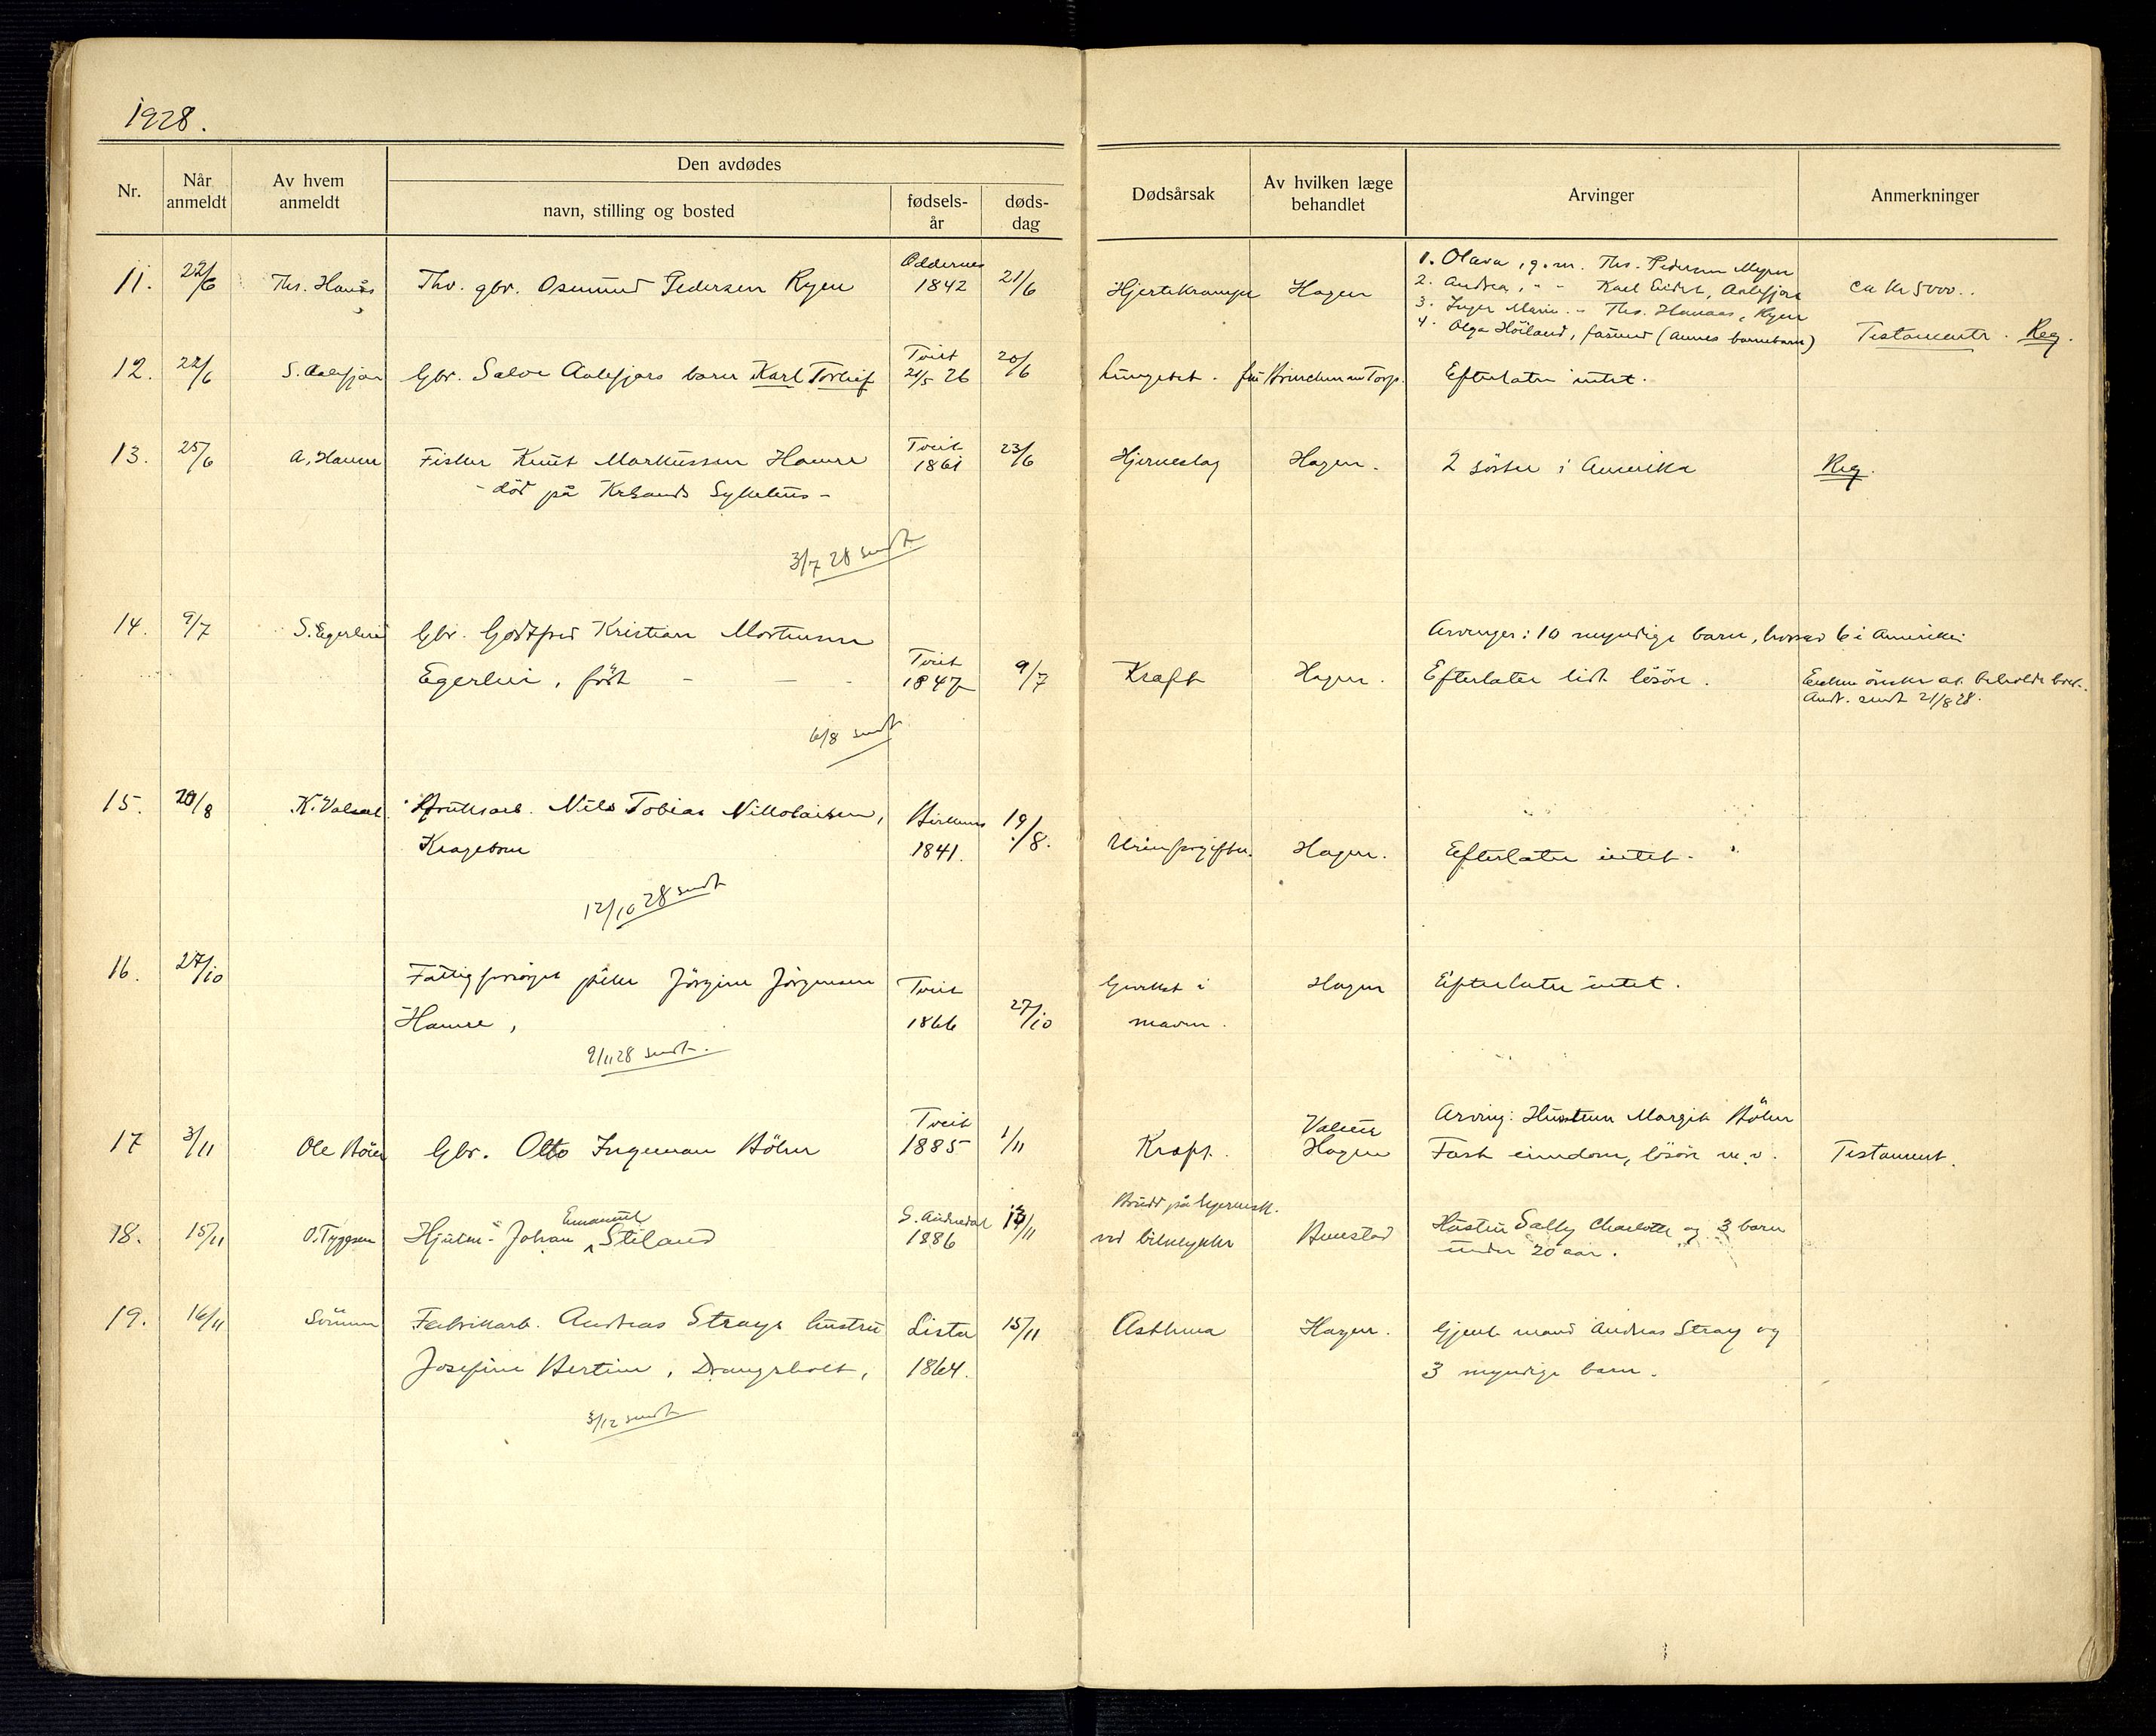 1928.
Nr.
Når anmeldt
Av hvem anmeldt
Den avdødes
navn, stilling og bosted
fødsels-år
døds-dag
Dødsårsak
Av hvilken læge behandlet
Arvinger
Anmerkninger
11. 22/6 Ths. Hanås Fhv. gbr. Osmund Pedersen Ryen Oddernes 1842 21/6 Hjertekrampe Hagen
1. Olava, g.m. Ths. Pedersen
2. Andrea, " - Karl Eidet, Aalefjær
3. Inger Marie " - Ths. Hanaas, Ryen
4. Olga Höiland, (Annes barnebarn)
ca kr 5000..
Testamente. Reg.
12. 22/6 S. Aalefjær Gbr. Salve Aalefjærs barn Karl Torleif Tveit 21/5 26 20/6 Lungebet. Efterlater intet.
13. 25/6 A. Hamre Fisker Knut Markussen Hamre Tveit 1861 23/6 Hjerneslag Hagen. 2 söstre i Amerika Reg.
- död på Krsands Sykehus -
3/7 28 sendt
14. 9/7 S. Egerlei Gbr. Godtfred Kristian Mortensen Arvinger: 10 myndige barn, hvorav 6 i Amerika
Egerlei, föst - — - Tveit 1847 9/7 Kræft Hagen. Efterlater lidt lösöre. Enken önsker at beholde boet.
Andr. sendt 21/8 28.
6/8 sendt
15. 20/8 K. Valsal Nils Tobias Nikolaisen, Birkenes 19/8.
Krageboen 1841. Urinforgiftn. Hagen. Efterlater intet.
12/10 28 sendt
16. 27/10 Fattigforsörget pike Jörgine Jörgensen Tveit Gevekst i Hagen Efterlater intet.
Hamre, 1866 27/10 maven.
9/11 28 sendt.
17 3/11 Ole Böen Gbr. Otto Ingeman Böhn Tveit 1885 1/11 Kræft. Hagen
Arving: Hustruen Margit Böhn
Fast eiendom, lösöre m.v. Testament.
18. 15/11 O. Tygesen Johan Emanuel Stiland S. Audnedal 1886 13/11 Brudd på hjernesk.
ved bilulykke Buestad Hustru Sally Charlotte og 3 barn
under 20 aar.
19. 16/11 Sönnen Fabrikarb. Andreas Strays hustru Lista 15/11 Asthma Hagen. Gjenl. mand Andreas Stray og
Josefine Bertine, Drangsholt, 1864. 3 myndige barn.
3/12 sendt